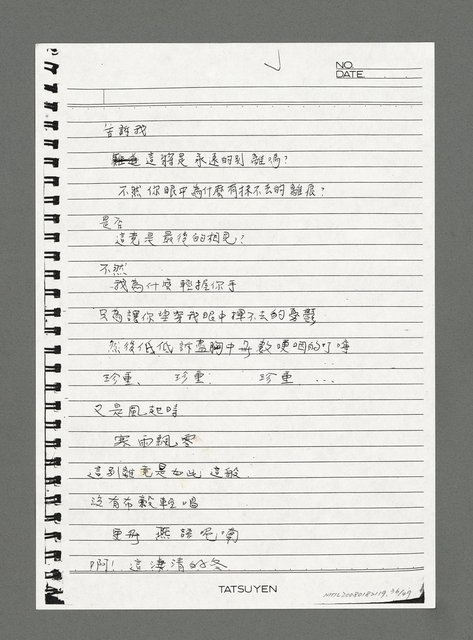 NO.
DATE.
告訴我
這將是永遠的別離嗎？
不然你眼中為什麼有抹不去的離痕？
是否
這竟是最後的相見？
不然
我為什麼輕握你手
只為讓你望穿我眼中揮不去的憂鬱
然後低低訴盡胸中無數哽咽的叮嚀
珍重、 珍重、 珍重...
又是風起時
寒雨飄零
這別離竟是如此這般
沒有布穀輕唱
更無燕語呢喃
啊！這淒清的冬
TATSUYEN
NMTL20080182119, 36/49